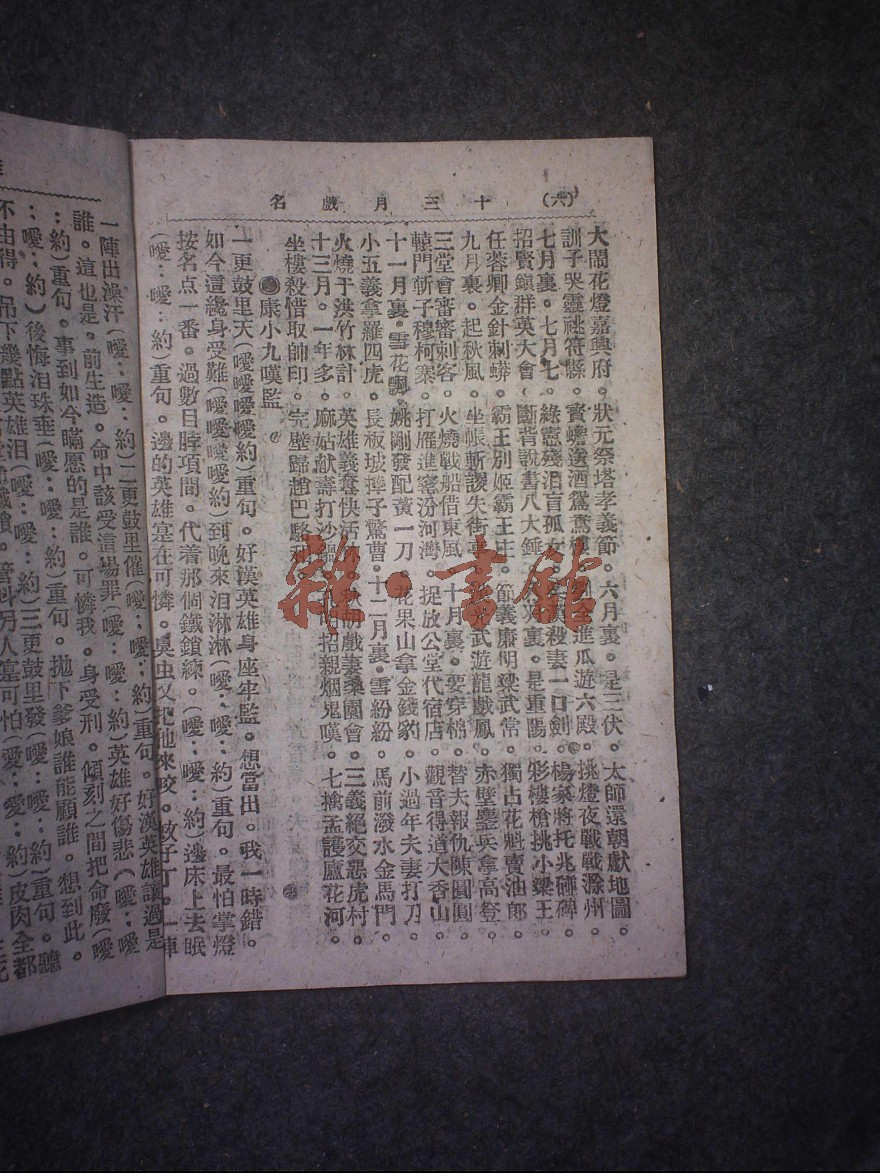 (六) 十三月戲名
大鬧花燈嘉興府。狀元祭塔孝義節。六月裏。是三伏。太師還朝獻地圖。
訓子哭靈祧符縣。賓蟾送酒鴛鴦 全進瓜遊六殿。挑燈夜戰戰滁州。
七月裏。七月七。綠窻殘泪盲孤女。 殺妻一口劍。楊家將托兆碰碑。
招賢鎮群英大會。斷背說書八大錘。 月裏。是重陽。彩樓槍挑小梁王。
任蓉卿金針刺蟒。霸王別姬霸王庄。節義廉明梁武常。獨占花魁賣油郎。
九月裏。起秋風。坐帳斬謖失街亭。 武遊龍戲鳳。赤壁鏖兵拿高登。
三堂會審審刺客。火燒戰船借東風。十月裏。要穿棉。替夫報仇陳圓圓。
轅門斬子穆柯寨。打雁進窰汾河灣。捉放公堂代宿店。觀音得道大香山。
十一月裏。雪花飄。姚剛發配黃一刀。花果山拿金錢豹。小過年夫妻打刀。
小五義拿羅四虎。長板坡摔子驚曹。十二月裏。雪紛紛。馬前潑水金馬門。
火燒于洪竹林計。英雄義奪快活林。秋胡戲妻桑園會。三義絕交惡虎村。
十三月。一年多。麻姑献壽打沙鍋。 招親烟鬼嘆。七擒孟護廬花河。
坐樓殺惜取帥印。完璧歸趙巴駱和。
康小九嘆監
一更鼓里天(噯噯噯噯約)重句。好漢英雄身座牢監。想當出。我一時錯。
如今這纔身受難(噯噯噯噯約)到晚來泪淋淋(噯:噯:約)重句。最怕掌燈
按名点一番。過數目脖項間。代着那個鐵鎖練。(噯:噯:約)邊床上去眠
(噯:噯:約)重句。邊的英雄寔在可憐。臭虫又把他來咬。蚊子丁。一陣
一陣出澡汗(噯:噯:約)二更鼓里催(噯:噯:約)重句。好漢英雄讓過是
誰。這也是。前生造。命中該受這場罪(噯:噯:約)英雄好傷悲(噯:噯
:約)重句。事到如今瞞愿的是誰。可憐我。身受刑。傾刻之間把命廢(噯
:噯:約)後悔泪珠垂(噯:噯:約)重句。拋下爹娘誰能顧誰。想到此。
不由得。吊下幾點英雄泪(噯:噯:約)三更鼓里發(噯:噯:約)重句。聽
寔可怕(噯:噯:約)皮肉全都
雜·書館